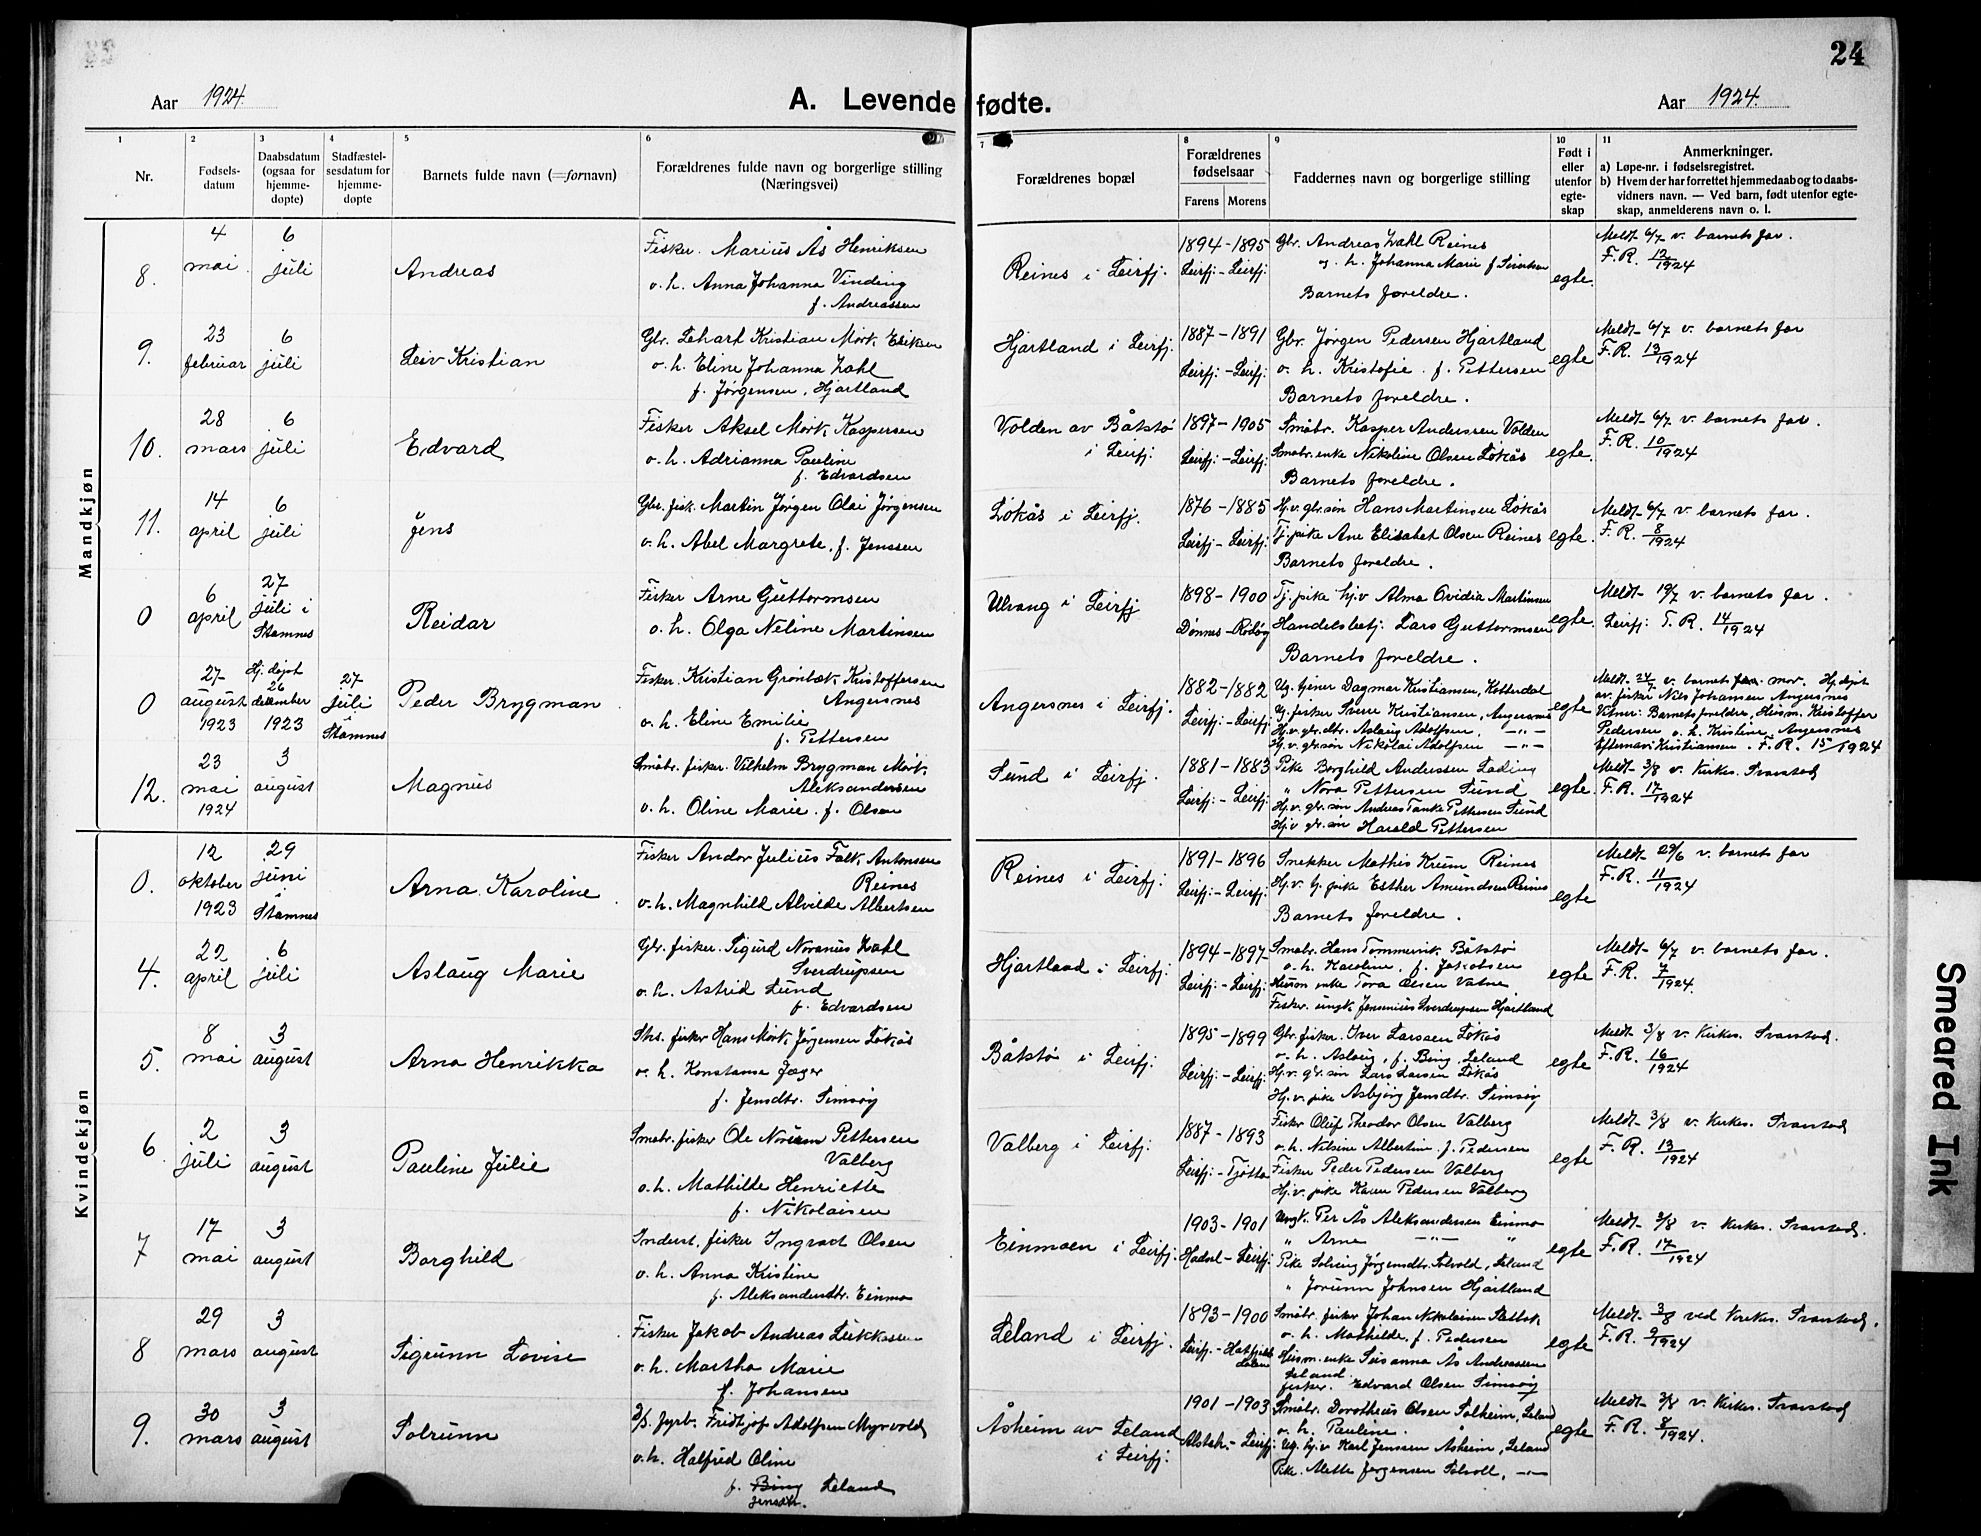 24
Aar 1924.
A. Levende fødte.
Aar 1924.
1 2 3 4 5 6 7 8 9 10 11
Nr.
Fødsels-
datum
Daabsdatum
(ogsaa for
hjemme-
døpte)
Stadfæstel-
sesdatum for
hjemme-
døpte
Barnets fulde navn (=fornavn)
Forældrenes fulde navn og borgerlige stilling
(Næringsvei)
Forældrenes bopæl
Forældrenes
fødselsaar
Farens Morens
Faddernes navn og borgerlige stilling
Født i
eller
utenfor
egte-
skap
Anmerkninger.
a) Løpe-nr. i fødselsregistret.
b) Hvem der har forrettet hjemmedaab og to daabs-
vidners navn. — Ved barn, født utenfor egte-
skap, anmelderens navn o. l.
Mandkjøn
8.
4
mai
6
juli
Andreas
Fisker. Marius Ås Henriksen
o. h. Anna Johanna Vinding
f. Andreassen
Reines i Leirfj.
1894 - 1895
Leirfj: - Leirfj:
Gbr. Andreas Zahl Reines
og h. Johanna Marie f.
Barnets foreldre.
egte.
Meldt 6/7 v. barnets far.
F. R. 12/1924
9.
23
februar
6
juli
Leiv Kristian
Gbr. Lehart Kristian Mørk Eriksen
o. h. Eline Johanna Zahl
f. Jørgensen, Hjartland
Hjartland i Leirfj.
1887 - 1891
Leirfj: - Leirfj:
Gbr. Jørgen Pedersen Hjartland
o. h. Kristofie. f. Pettersen
Barnets foreldre.
egte
Meldt 6/7 v. barnets far
F. R. 13/1924
10.
28
mars
6
juli
Edvard
Fisker Aksel Mørk Kaspersen
o. h. Adrianna Pauline
f. Edvardsen
Volden av Båtstø
i Leirfj.
1897 - 1905
Leirfj: - Leirfj:
Småbr. Kasper Anderssen Volden
Småbr. enke Nikoline Olsen Løkås
Barnets foreldre.
egte.
Meldt 6/7 v. barnets far.
F. R. 10/1924
11.
14
april
6
juli
Jens
Gbr. fisk. Martin Jørgen Olai Jørgensen
o. h. Abel Margrete. f. Jenssen
Løkås i Leirfj.
1876 - 1885
Leirfj - Leirfj:
Hj. v. gbr. søn Hans Martinsen Løkås
Tj. pike Ane Elisabet Olsen Reines
Barnets foreldre.
egte.
Meldt 6/7 v. barnets far.
F. R. 8/1924
0
6
april
27
juli i
Stamnes
Reidar
Fisker Arne Guttormsen
o. h. Olga Neline Martinsen
Ulvang i Leirfj
1898 - 1900
Dønnes - Rødøy
Tj. pike hj. v Alma Ovidia Martinsen
Handelsbetj: Lars Guttormsen
Barnets foreldre.
egte.
Meldt 19/7 v. barnets far.
Leirfj: F. R. 14/1924
0
27
august
1923
Hj. døpt
26
desember
1923
27
juli
i
Stamnes
Peder Brygman
Fisker. Kristian Grönbæk Kristoffersen
Angersnes
o. h. Eline Emilie
f. Pettersen
Angersnes i Leirfj.
1882 - 1882
Leirfj: - Leirfj:
Ug. tjener Dagmar Kristiansen, Kotterdal
Ug. fisker Sverre Kristiansen, Angersnes
Hj. v. gbr. dtr. Aslaug Adolfsen, —"—
Hj. v. gbr. søn Nikolai Adolfsen —"—
egte
Meldt 27/7 v. barnets mor. Hj. døpt
av fisker Nils Johansen Angersnes
Vitner: Barnets foreldre, Husm. Kristoffer
Pedersen o. h. Kristine, Angersnes
Efternavn Kristiansen. F. R. 15/1924
12.
23
mai
1924
3
august
Magnus
Småbr. fisker. Vilhelm Brygman Mørk
Aleksandersen
o. h. Oline Marie. f. Olsen
Sund i Leirfj.
1881 - 1883
Leirfj: - Leirfj:
Pike Borghild Anderssen Lading
" Nora Pettersen Sund
Hj. v. gbr. søn Andreas Tanke Pettersen Sund
Hj. v gbr. søn Harald Pettersen
egte
Meldt 3/8 v. Kirkes. Transtad
F. R. 17/1924
Kvindekjøn
0.
12
oktober
1923
29
juni
i
Stamnes
Arna Karoline
Fisker Andor Julius Falk Antonsen
Reines
o. h. Magnhild Alvilde Albertsen
Reines i Leirfj.
1891 - 1896
Leirfj: - Leirfj:
Snekker Mathis Krum Reines
Hj. v. tj. pike Esther Amundsen Reines
Barnets foreldre.
egte
Meldt 29/6 v. barnet far
F. R. 11/1924
4.
22
april
6
juli
Aslaug Marie
Gbr. fisker. Sigurd Novanus Zahl
Sverdrupsen
o. h. Astrid Lund
f. Edvardsen
Hjartland i Leirfj.
1894 - 1897
Leirfj: - Leirfj:
Småbr. Hans Tømmervik, Båtstø
o. h. Karoline, f. Jakobsen
Husm enke Tora Olsen Vatne
Fisker. ungk. Jensenius Sverdrupsen Hjartland
egte
Meldt 6/7 v. barnets far.
F. R. 7/1924.
5.
8
mai
3
august
Arna Henrikka
Strs. fisker Hans Mørk Jørgensen Løkås
o. h. Konstanse Jæger
f. Jensdtr. Simsøy
Båtstø i Leirfj:
1895 - 1899
Leirfj: - Leirfj:
Gbr. fisker. Iver Larssen Løkås
o. h. Aslaug, f. Bing, Leland
Hj. v. gbr. søn Lars Larsen Løkås
Hj. v. pike Asbjørg Jensdtr. Simsøy
egte
Meldt 3/8 v. Kirkes. Transtad.
F. R. 16/1924
6
2
juli
3
august
Pauline Julie
Småbr. fisker Ole Pettersen
Valberg
o. h. Mathilde Henriette
f. Nikolaisen
Valberg i Leirfj:
1887 - 1893
Leirfj: - Tjøtta
Fisker Oluf Theodor Olsen Valberg
o. h. Nilsine Albertine. f. Pedersen
Fisker Peder Pedersen Valberg
Hj. v. pike Karen Pedersen Valberg
egte
Meldt 3/8 v. Kirkes. Transtad
F. R. 13/1924
7
17
mai
3
august
Borghild
Inderst, fisker Ingvart Olsen
o. h. Anna Kristine
f. Aleksandersdtr. Einmo
Einmoen i Leirfj:
1903 - 1901
Hadsel - Leirfj:
Ungk. Per Ås Aleksandersen Einmo
" Arne —"— "
Pike Solveig Jørgensdtr. Solvold, Leland
" Jorunn Johnsen Hjartland
egte
Meldt 3/8 v. Kirkes. Transtad.
F. R. 17/1924
8
29
mars
3
august
Sigrunn Lovise
Fisker Jakob Andreas Lukkassen
o. h. Martha Marie
f. Johansen
Leland i Leirfj:
1893 - 1900
Leirfj. - Hatfjelddalen
Småbr. fisker Johan Nikolaisen
o. h. Mathilde. f. Pedersen
Husm. enke Susanna Ås Andreassen
Leland
fisker. Edvard Olsen Simsøy
egte
Meldt 3/8 ved Kirkes. Transtad.
F. R. 9/1924
9.
30
mars
3
august
Solrunn
D/S. fyrb. Fridtjof Adolfsen Myrvold
o. h. Halfrid Oline
f. Bing Leland
Jensdtr.
Åsheim av Leland
i Leirfj:
1901 - 1903
Alstah. - Leirfj:
Småbr. Dorotheus Olsen Solheim, Leland
o. h. Pauline.
Ug. hj. v Karl Jenssen Åsheim, Leland
Pike. Alette Jørgensen Solvoll, —"—
egte
Meldt 3/8 v. Kirkes. Transtad
F. R. 8/1924.
Smeared Ink